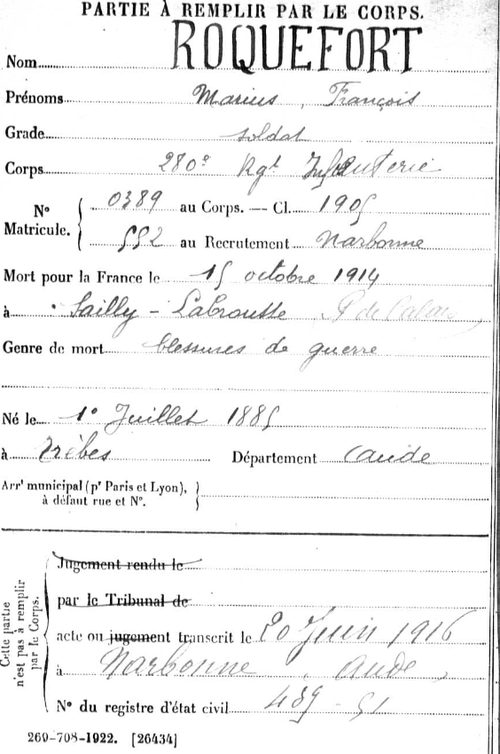 PARTIE À REMPLIR PAR LE CORPS.
Nom ROQUEFORT
Prénoms Marius, François
Grade soldat
Corps 280e Rgt Infanterie
N° Matricule. 0389 au Corps. — Cl. 1905
552 au Recrutement Narbonne
Mort pour la France le 15 octobre 1914
à Sailly - Labrousse P. de Calais
Genre de mort blessures de guerre
Né le 1º Juillet 1885
à Trèbes Département Aude
Arrt municipal (pr Paris et Lyon),
à défaut rue et N°.
Cette partie
n'est pas à remplir
par le Corps.
Jugement rendu le
par le Tribunal de
acte ou jugement transcrit le 20 Juin 1916
à Narbonne, Aude,
N° du registre d'état civil 489 - 51
269-708-1922. [26434]